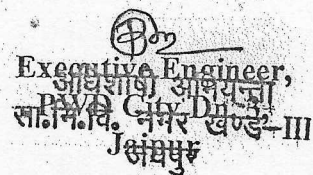 Executive Engineer,
अधिशाषी अभियन्ता
PWD City Dn-3,
सा.नि.वि. नगर खण्ड-III
Jaipur
जयपुर